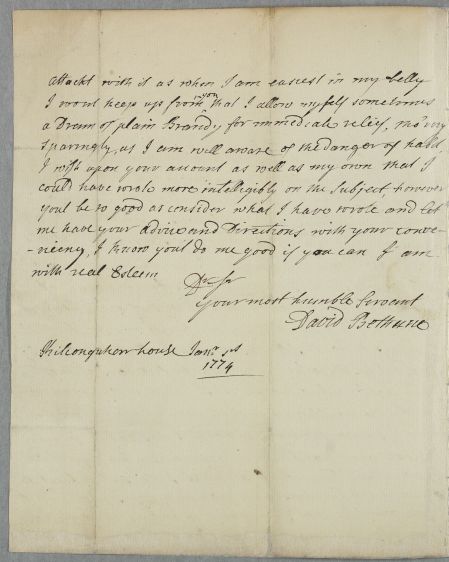 Attackt with it as when I am easiest in my belly
I wont keep up from you that I allow myself sometimes
a Dram of plain Brandy for immediate relief, tho' very
Sparingly, as I am well aware of the danger of habit,
I wish upon your account as well as my own that I
could have wrote more intelligibly on the Subject, however
youl be so good as consider what I have wrote and let
me have your advice and Directions with your conve-
-niency, I know youl do me good if you can I am
with real Esteem
Dr Sr
your most humble Servant
David Bethune
Kilconquhar house Janry 1st
1774